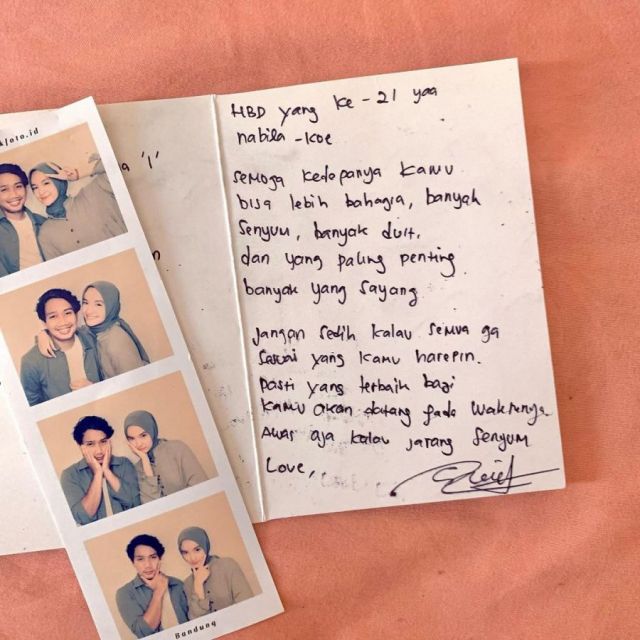 foto.id
a '1'
HBD yang ke - 21 yaa
nabila - koe
semoga kedepanya kamu
bisa lebih bahagia, banyak
senyum, banyak duit,
dan yang paling penting
banyak yang sayang
jangan sedih kalau semua ga
sesuai yang kamu harepin.
pasti yang terbaik bagi
kamu akan datang pada waktunya
Awas aja kalau jarang senyum
Love,
Bandung